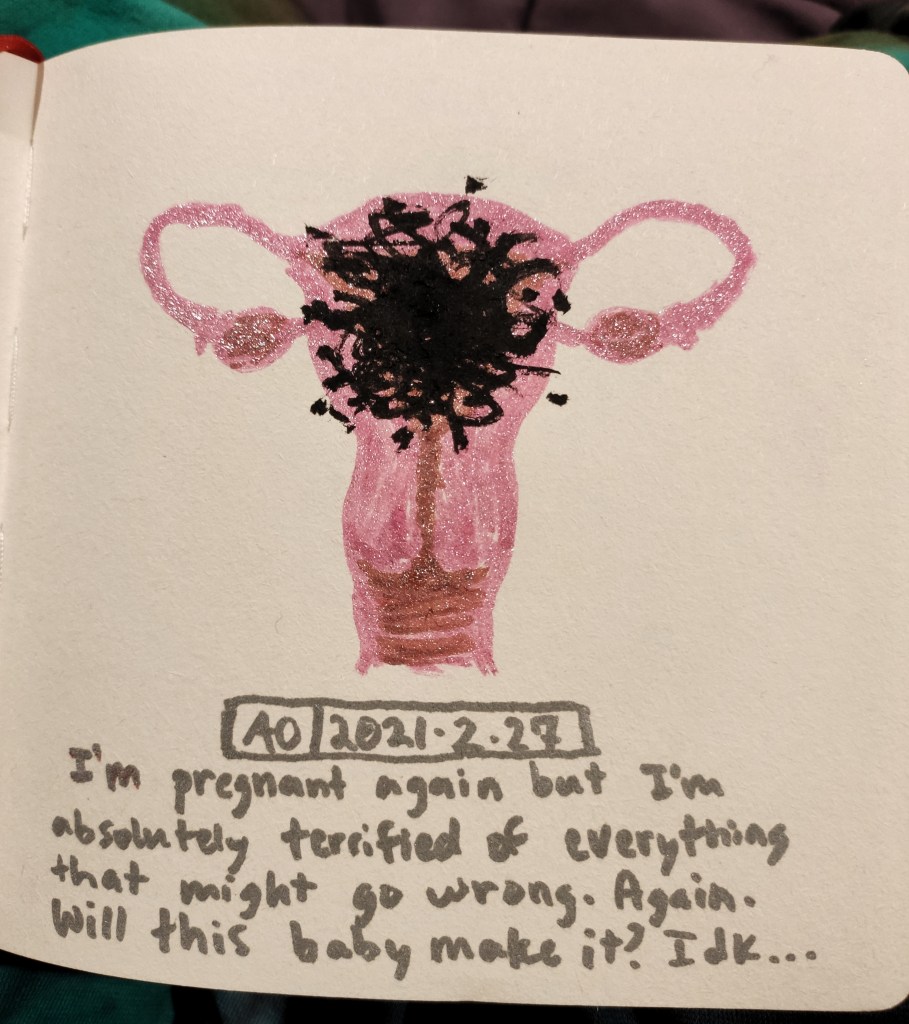 AO 2021.2.27
I'm pregnant again but I'm
absolutely terrified of everything
that might go wrong. Again.
Will this baby make it? Idk...